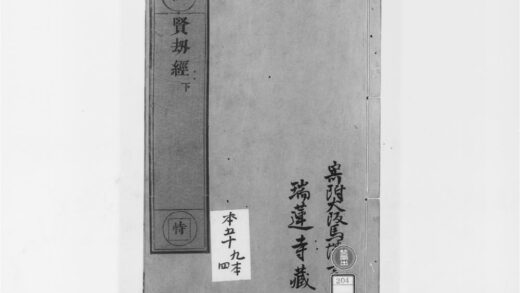 賢劫經 下
恃
寄附大阪馬場
瑞蓮寺藏
本五十九本
四
204